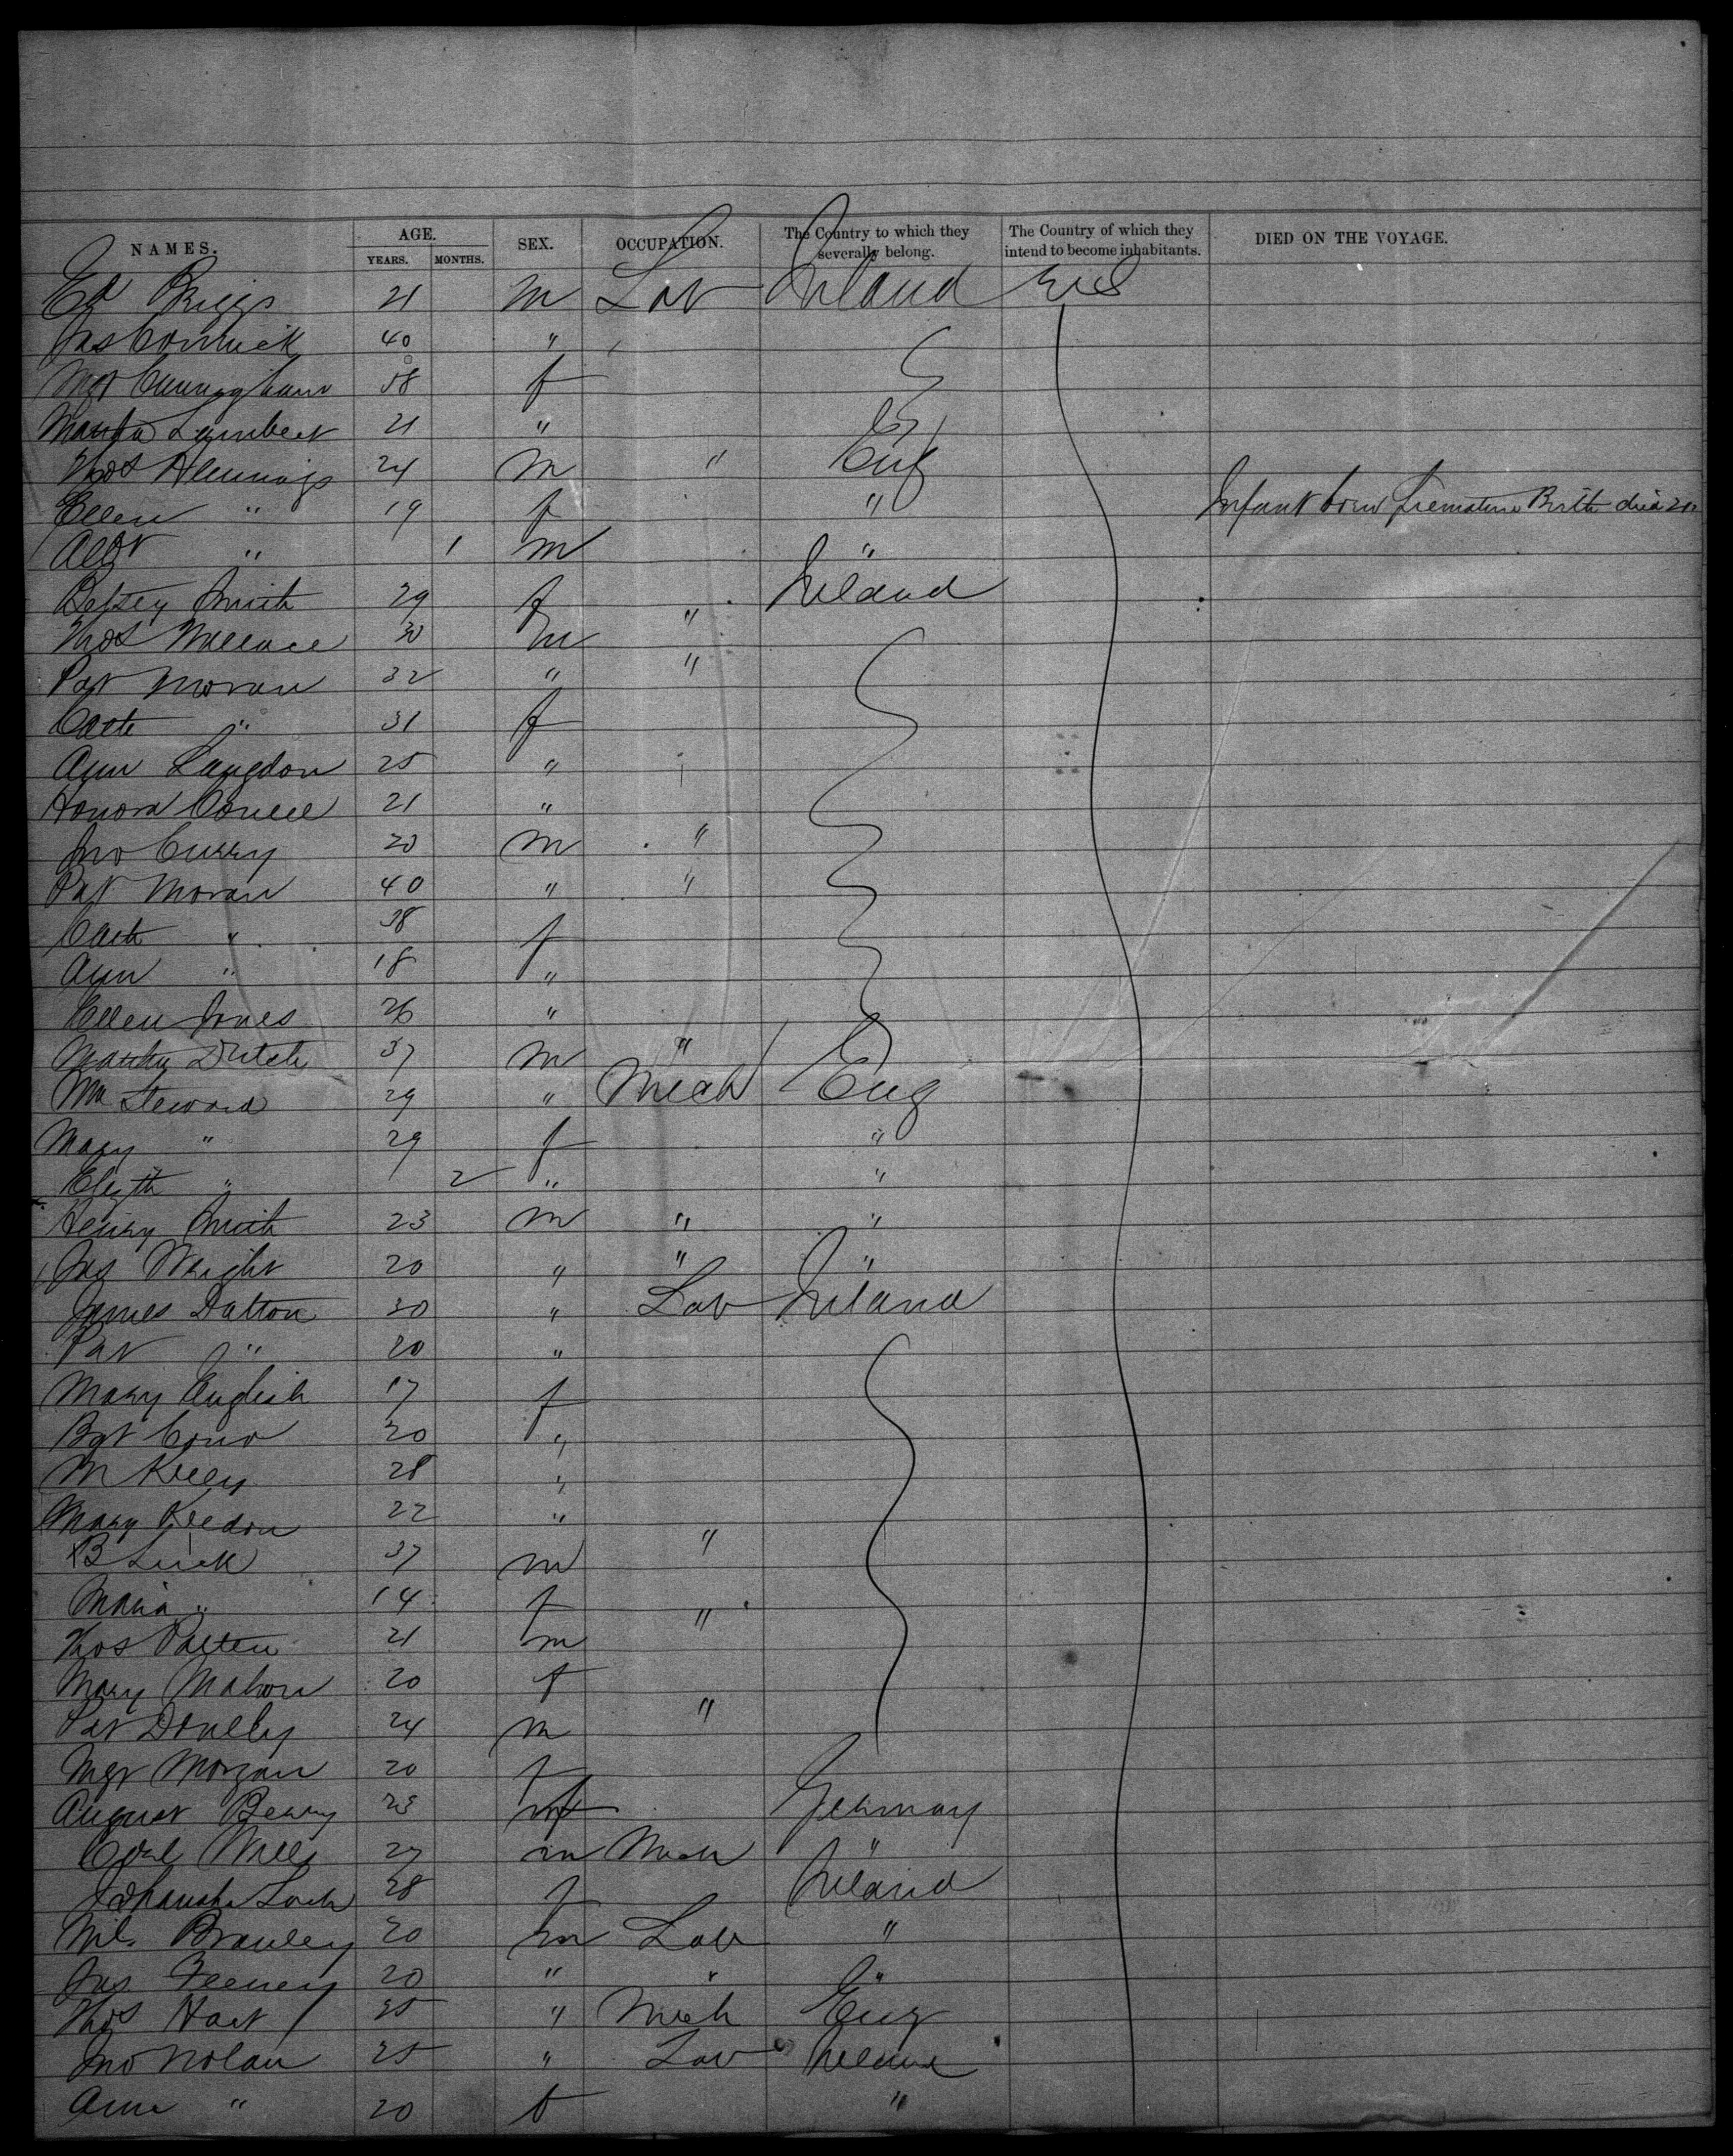 NAMES. AGE. SEX. OCCUPATION. The Country to which they severally belong. The Country of which they intend to become inhabitants. DIED ON THE VOYAGE.
YEARS. MONTHS.
Ed Briggs 21 m Lab Ireland US
Jas Cormick 40 "
Mgt Cunningham 38 f
Martha Lambert 21 "
Thos Hennings 24 m " Eng
Ellen " 19 f " Infant born Premature Birth died
Albt " 1 m "
Betsey Smith 29 f " Ireland
Thos Wallace 30 m
Pat Moran 32 " "
Cath " 31 f
Ann Langdon 25 "
Honora Connell 21 "
Jno Curry 20 m "
Pat Moran 40 " "
Cath " 38 f
Ann " 18 "
Ellen Jones 26 "
37 m "
Wm Steward 29 " Mech Eng
Mary " 29 f "
Elizth " 2 " "
Henry Smith 23 m " "
Jas Wright 20 " " "
James Dalton 30 " Lab Ireland
Pat " 20 "
Mary English 17 f
Bgt 20 "
M Kelly 28 "
Mary 22 "
B 37 m "
Maria " 14 f
Thos Patten 21 m "
Mary Mahon 20 f
Pat Donelly 24 m "
Mgt Morgan 20 f
August Berry 23 Germany
27 m Mech "
Johannah 28 f Ireland
20 m Lab "
Jas Feeney 20 " " "
Thos Hart 25 " Mech Eng
Jno Nolan 25 " Lab Ireland
Ann " 20 f "